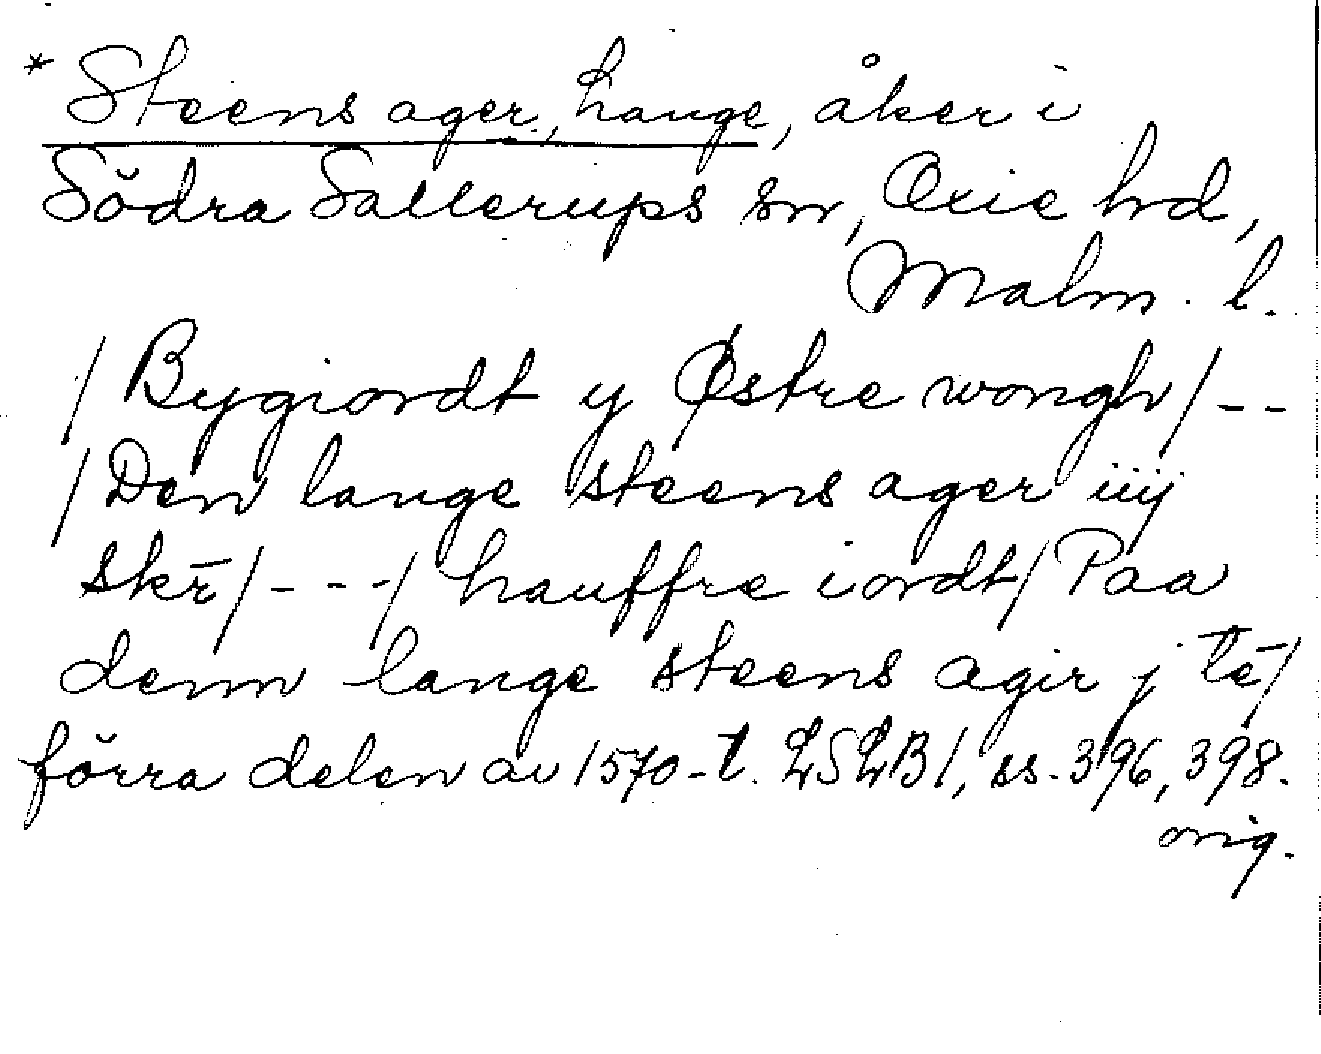 * Steens ager, Lange, åker i
Södra Sallerups sn, Oxie hd,
Malm. l.
/ Bygiordt y Østre wongh / - -
/ Den lange steens ager iiij
skr̄ / - - - / hauffre iordt / Paa
denn lange steens agir j tē /
förra delen av 1570-t. LSLB 1, ss. 396, 398.
orig.